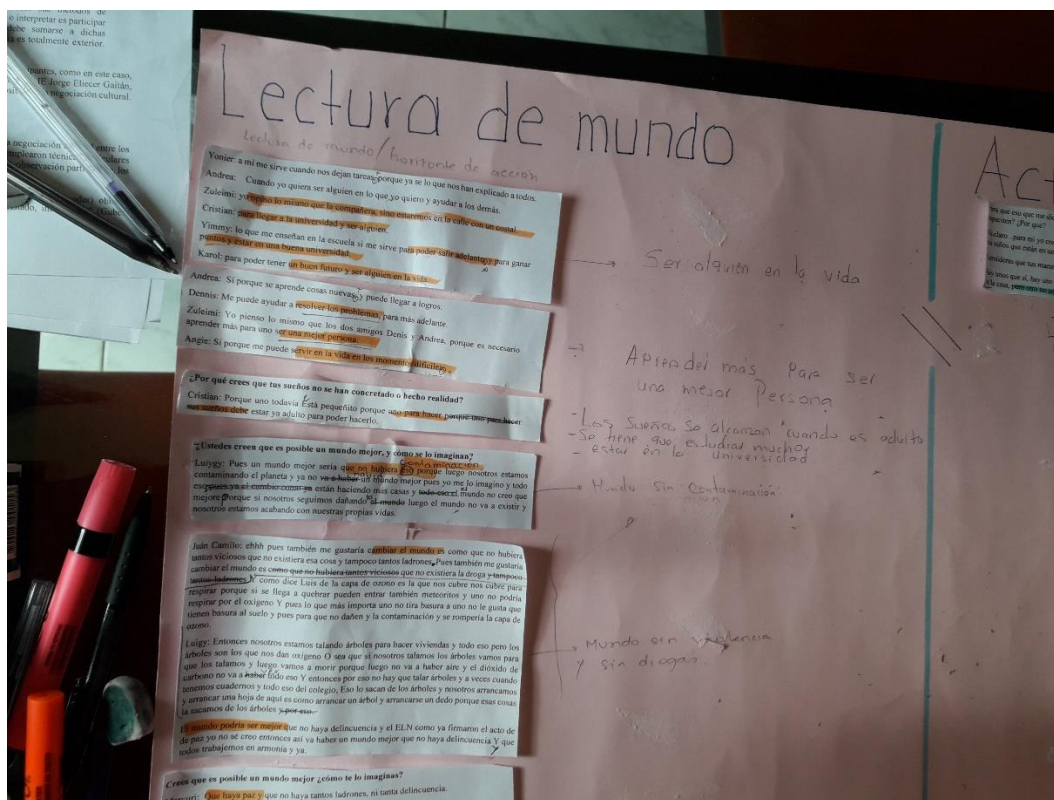 métodos de
o interpretar es participar
debe sumarse a dichas
a es totalmente exterior.
como en este caso,
IE Jorge Eliecer Gaitán,
negociación cultural.
a negociación entre los
emplearon técnicas
observación los
Lectura de mundo
Lectura de mundo/horizonte de acción
Yonier: a mí me sirve cuando nos dejan tareas porque ya se lo que nos han explicado a todos.
Andrea: Cuando yo quiera ser alguien en lo que yo quiero y ayudar a los demás.
Zuleimi: yo opino lo mismo que la compañera, sino estaremos en la calle con un costal.
Cristian: para llegar a la universidad y ser alguien.
Yimmy: lo que me enseñan en la escuela si me sirve para poder salir adelante y para ganar
puntos y estar en una buena universidad.
Karol: para poder tener un buen futuro y ser alguien en la vida
Andrea: Sí porque se aprende cosas nuevas y puede llegar a logros.
Dennis: Me puede ayudar a resolver los problemas, para más adelante.
Zuleimi: Yo pienso lo mismo que los dos amigos Denis y Andrea, porque es necesario
aprender más para uno ser una mejor persona.
Angie: Si porque me puede servir en la vida en los momentos difíciles.
¿Por qué crees que tus sueños no se han concretado o hecho realidad?
Cristian: Porque uno todavía Está pequeñito porque uno para hacer porque uno para hacer
sus sueños debe estar ya adulto para poder hacerlo.
¿Ustedes creen que es posible un mundo mejor, y cómo se lo imaginan?
contaminación
Luiygy: Pues un mundo mejor sería que no hubiera eso porque luego nosotros estamos
contaminando el planeta y ya no va a haber un mundo mejor pues yo me lo imagino y todo
eso pues ya el cambio están haciendo más casas y todo eso el mundo no creo que
mejore Porque si nosotros seguimos dañando al mundo luego el mundo no va a existir y
nosotros estamos acabando con nuestras propias vidas.
Juan Camilo: ehhh pues también me gustaría cambiar el mundo es como que no hubiera
tantos viciosos que no existiera esa cosa y tampoco tantos ladrones, Pues también me gustaría
cambiar el mundo es como que no hubiera tantos viciosos que no existiera la droga y tampoco
tantos ladrones Y como dice Luis de la capa de ozono es la que nos cubre nos cubre para
respirar porque si se llega a quebrar pueden entrar también meteoritos y uno no podría
respirar por el oxígeno Y pues lo que más importa uno no tira basura a uno no le gusta que
tienen basura al suelo y pues para que no dañen y la contaminación y se rompería la capa de
ozono.
Luiigy: Entonces nosotros estamos talando árboles para hacer viviendas y todo eso pero los
árboles son los que nos dan oxígeno O sea que si nosotros talamos los árboles vamos para
que los talamos y luego vamos a morir porque luego no va a haber aire y el dióxido de
carbono no va a haber todo eso Y entonces por eso no hay que talar árboles y a veces cuando
tenemos cuadernos y todo eso del colegio, Eso lo sacan de los árboles y nosotros arrancamos
y arrancar una hoja de aquí es como arrancar un árbol y arrancarse un dedo porque esas cosas
la sacamos de los árboles y por eso.
El mundo podría ser mejor que no haya delincuencia y el ELN como ya firmaron el acto de
de paz yo no sé creo entonces así va haber un mundo mejor que no haya delincuencia Y que
todos trabajemos en armonía y ya.
Crees que es posible un mundo mejor ¿cómo te lo imaginas?
Que haya paz y que no haya tantos ladrones, ni tanta delincuencia.
Ser alguien en la vida
Aprender más para ser
una mejor Persona
- Los sueños se alcanzan cuando es adulto
- Se tiene que estudiar mucho
- estar en la universidad
Mundo sin contaminación
Mundo sin violencia
y sin drogas.
Ac